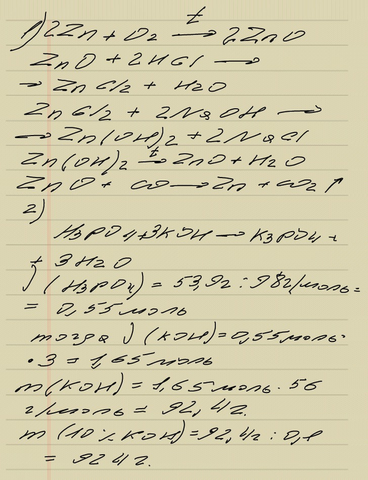 1) 2Zn + O2 t→ 2ZnO
ZnO + 2HCl →
→ ZnCl2 + H2O
ZnCl2 + 2NaOH →
→ Zn(OH)2 + 2NaCl
Zn(OH)2 t→ ZnO + H2O
ZnO + CO → Zn + CO2 ↑
2)
H3PO4 + 3KOH → K3PO4 +
+ 3H2O
ν(H3PO4) = 53,9г : 98г/моль =
= 0,55 моль
тогда ν(KOH) = 0,55 моль ·
· 3 = 1,65 моль
m(KOH) = 1,65 моль · 56
г/моль = 92,4г.
m(10% KOH) = 92,4г : 0,1
= 924г.